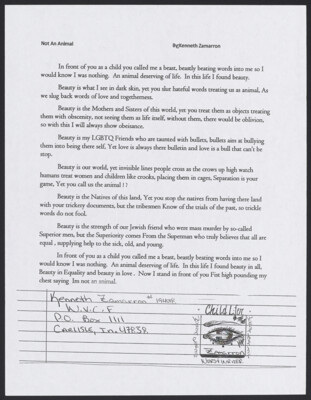 Not An Animal
By;Kenneth Zamarron
In front of you as a child you called me a beast, beatly beating words into me so I
would know I was nothing. An animal deserving of life. In this life I found beauty.
Beauty is what I see in dark skin, yet you slur hateful words treating us as animal, As
we slug back words of love and togetherness.
Beauty is the Mothers and Sisters of this world, yet you treat them as objects treating
them with obscenity, not seeing them as life itself, without them, there would be oblivion,
so with this I will always show obeisance.
Beauty is my LGBTQ Friends who are taunted with bullets, bullets aim at bullying
them into being there self, Yet love is always there bulletin and love is a bull that can't be
stop.
Beauty is our world, yet invisible lines people cross as the crows up high watch
humans treat women and children like crooks, placing them in cages, Separation is your
game, Yet you call us the animal !!
Beauty is the Natives of this land, Yet you stop the natives from having there land
with your trickery documents, but the tribesmen Know of the trials of the past, so trickle
words do not fool.
Beauty is the strength of our Jewish friend who were mass murder by so-called
Superior men, but the Superiority comes From the Superman who truly believes that all are
equal . supplying help to the sick, old, and young.
In front of you as a child you called me a beast, beatly beating words into me so I
would know I was nothing. An animal deserving of life. In this life I found beauty in all,
Beauty in Equality and beauty in love . Now I stand in front of you Fist high pounding my
chest saying Im not an animal.
Kenneth Zamarron
W.V.C.F
P.O. Box 1111
Carlisle, In. 47838
Child Lior
Zamarron